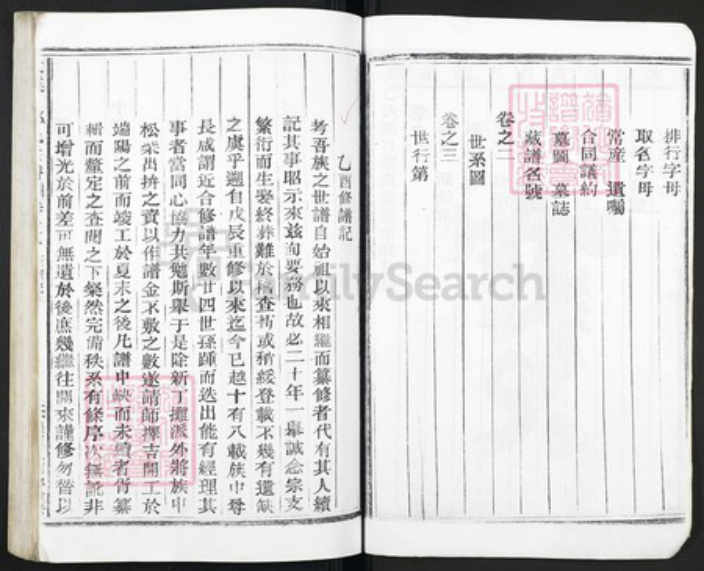 排行字母
取名字母
常産 遺囑
合同議約
墓圖 墓誌
藏譜名號
卷之二
世系圖
卷之三
世行第
乙酉修譜記
考吾族之世譜自始祖以來相繼而纂修者代有其人續
記其事昭示來茲洵要務也故必二十年一舉誠念宗支
繁衍而生娶終葬難於稽查倘或稍緩登載不幾有遺缺
之虞乎溯自戊辰重修以來迄今已越十有八載族中每
長咸謂近合修譜年數廿四世孫踵而迭出能有經理其
事者當同心協力共勉斯舉于是除新丁攤派外將族中
松柴出拚之資以作譜金不敷之數遂請師擇吉開工於
端陽之前而竣工於夏末之後凡譜中缺而未續者胥纂
輯而釐定之查閱之下粲然完備秩系有條序次無訛非
可增光於前差可無遺於後庶幾繼往開來謹修勿替以
FamilySearch